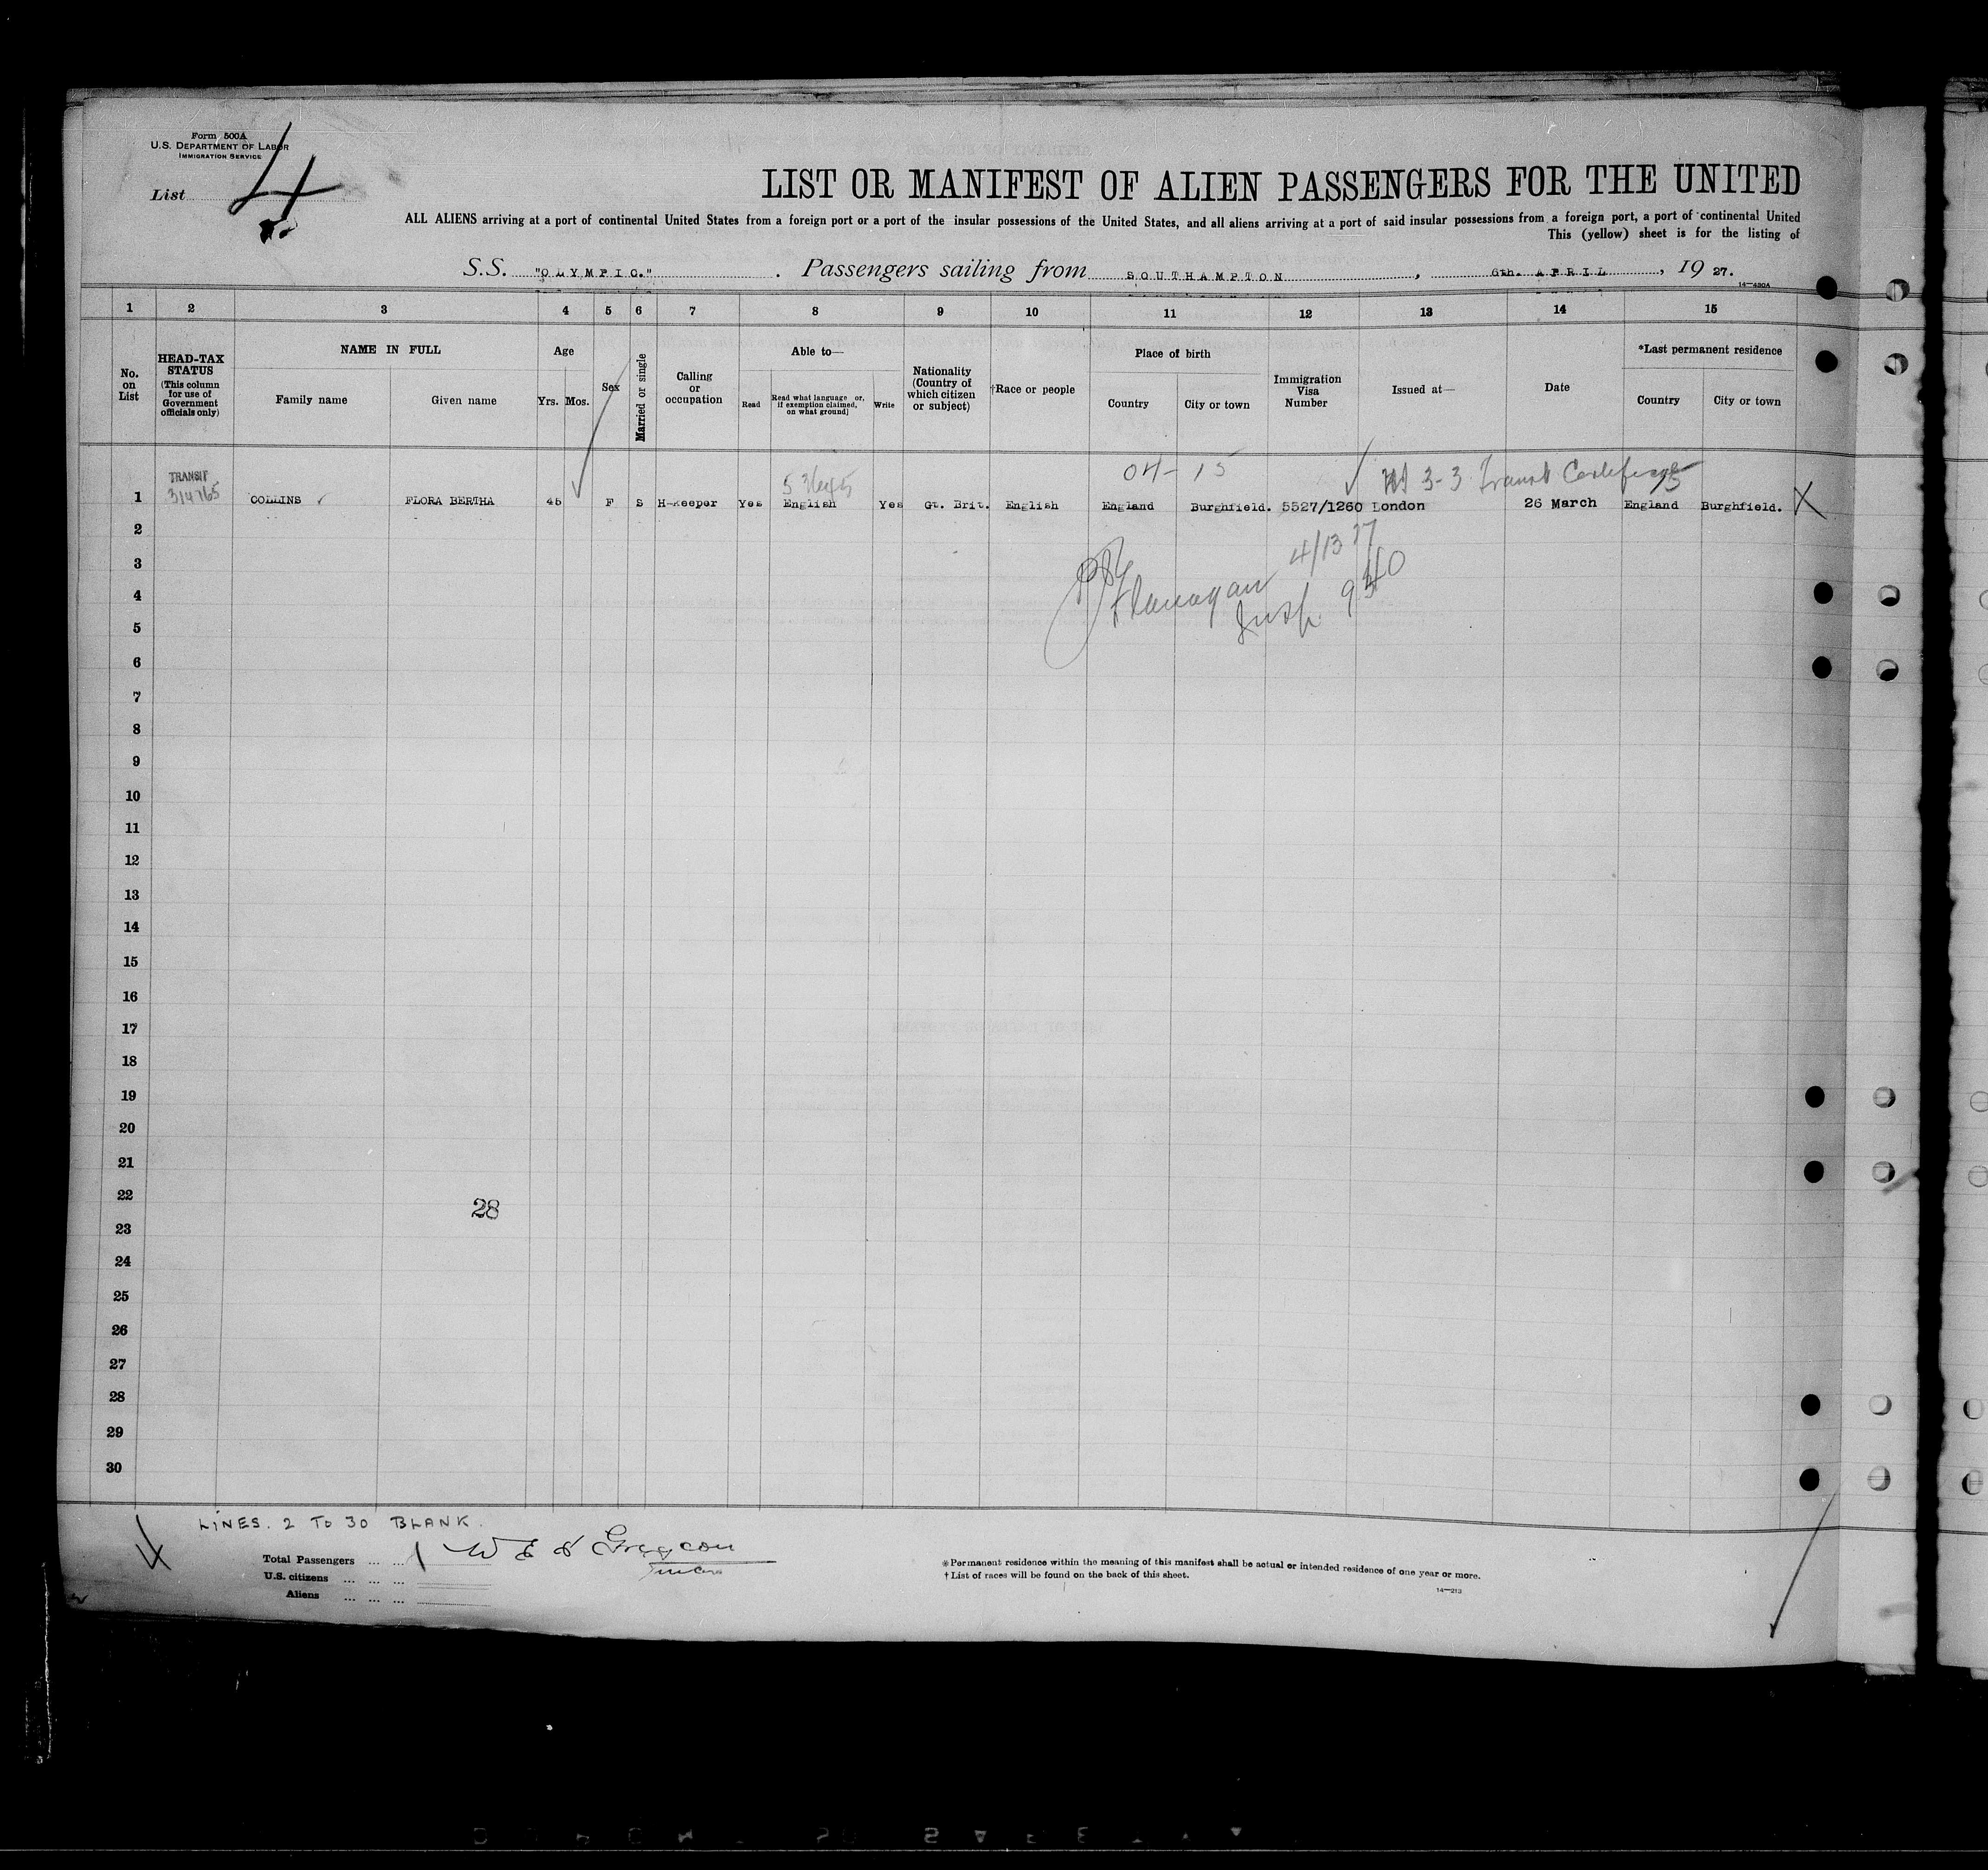 Form 500A
U.S. DEPARTMENT OF LABOR
IMMIGRATION SERVICE
List 4
LIST OR MANIFEST OF ALIEN PASSENGERS FOR THE UNITED
ALL ALIENS arriving at a port of continental United States from a foreign port or a port of the insular possessions of the United States, and all aliens arriving at a port of said insular possessions from a foreign port, a port of continental United
This (yellow) sheet is for the listing of
S.S. "OLYMPIC." Passengers sailing from SOUTHAMPTON, 6th. APRIL, 1927.
14—430A
1 2 3 4 5 6 7 8 9 10 11 12 13 14 15
No. on List
HEAD-TAX STATUS (This column for use of Government officials only)
NAME IN FULL
Family name Given name
Age
Yrs. Mos.
Sex
Married or single
Calling or occupation
Able to—
Read Read what language or, if exemption claimed, on what ground] Write
Nationality (Country of which citizen or subject)
†Race or people
Place of birth
Country City or town
Immigration Visa Number
Issued at—
Date
*Last permanent residence
Country City or town
TRANSIT 04-15 3-3 Transit Certificate
314765
1 COLLINS FLORA BERTHA 45 F S H-Keeper Yes English Yes Gt. Brit. English England Burghfield. 5527/1260 London 26 March England Burghfield. X
2
4/13 27
3
Flanagan
4
Insp. 940
5
6
7
8
9
10
11
12
13
14
15
16
17
18
19
20
21
22
28
23
24
25
26
27
28
29
30
LINES. 2 TO 30 BLANK.
4
Total Passengers ... ... 1
U.S. citizens ... ... ...
Aliens ... ... ...
*Permanent residence within the meaning of this manifest shall be actual or intended residence of one year or more.
†List of races will be found on the back of this sheet.
14—213